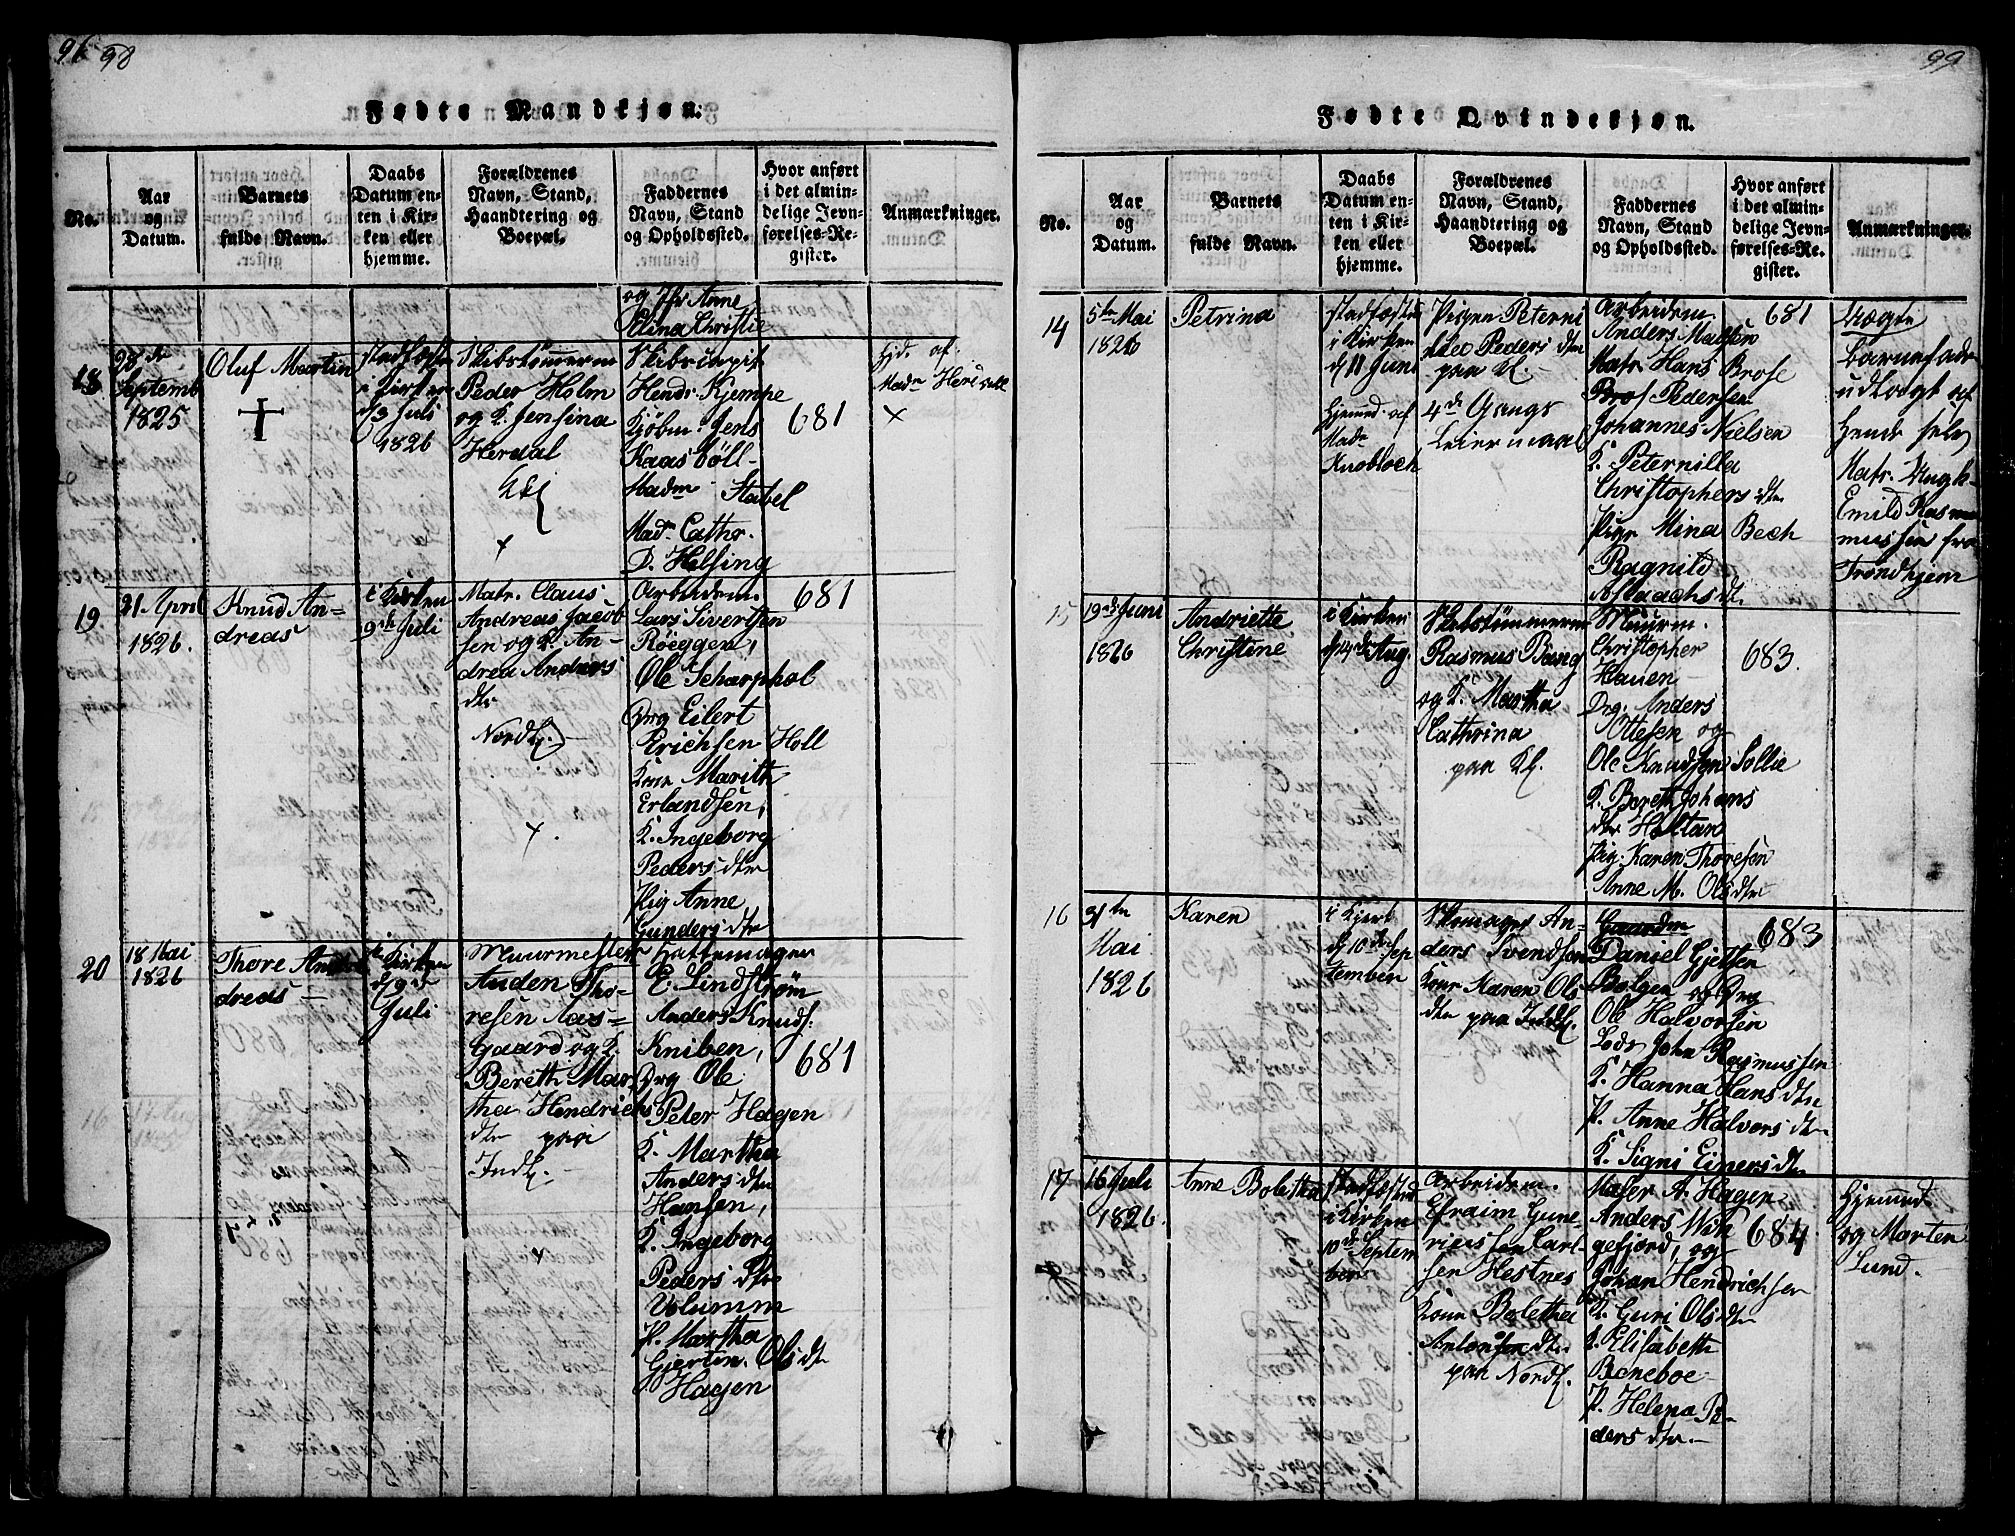 96 98
Fødte Mandkjøn.
No.
Aar
og
Datum.
Barnets
fulde Navn.
Daabs
Datum en-
ten i Kir-
ken eller
hjemme.
Forældrenes
Navn, Stand,
Haandtering og
Boepæl.
Faddernes
Navn, Stand
og Opholdssted.
Hvor anført
i det almin-
delige Jevn-
førelses-Re-
gister.
Anmærkninger.
og Jfr Anne
Elina Christie
18
28de
Septemb
1825
Oluf Martin
stadfæstet
i Kirken
d 9 Juli
1826
Skibstømmerm
Peder Holm
og K. Jensina
Herdal
Skibscapit
Hendr. Kjempe
Kjøbm. Jens
Kaasbøll
Madm Stabel
Madm Cathr.
D. Helsing
681
Hjd. af
Madm
19
21 April
1826.
Knud An-
dreas
i Kirken
9de Juli
Matr. Claus
Andreas Jacob
sen og K. An-
drea Anders
dtr
Nordl.
Arbeidsm.
Lars Sivertsen
Røeggen,
Ole Scharphol
Drg Eilert
Erichsen Holl
Kone Marith
Erlandsen,
K. Ingeborg
Peders dtr
Pig Anne
Gunders dtr
681
20
18 Mai
1826
Thore An
dreas
i Kirken
d 9de
Juli
Muurmester
Auden Tho-
resen Aas-
gaard og K.
Bereth Mar
tha Hendrichs
dtr paa
Indl.
Hattemager
E. Lindstrøm
Anders Knuds:
Kniben,
Drg Ole
Peter Hagen
K. Martha
Anders dtr
Hansen,
K. Ingeborg
Peders dtr
Volumm
P. Martha
Gjertin. Ols dtr
Hagen
681
99
Fødte Qvindekjøn.
No.
Aar
og
Datum.
Barnets
fulde Navn.
Daabs
Datum en-
ten i Kir-
ken eller
hjemme.
Forældrenes
Navn, Stand,
Haandtering og
Boepæl.
Faddernes
Navn, Stand
og Opholdssted.
Hvor anført
i det almin-
delige Jevn-
førelses-Re-
gister.
Anmærkninger.
14
5te Mai
1826
Petrina
stadfæstet
i Kirken
d 11 Juni
Hjemmed. af
Madm
Knobloch
Pigen Peterni
lle Peders dtr
paa Kl.
4de Gangs
Leiermaal
Arbeidsm.
Anders Madsen
Matr. Hans Brose
Pedersen
Johannes Nielsen
K. Peternilla
Christophers dtr
Pige Mina Bech
Ragnild
Aslachs dt.
681
Uægte
Barnefader
udlagt af
hende selv
Matr. Ungk.
Emild Ras
mussen fra
Trondhjem
15
19de Juni
1826
Andriette
Christine
i Kirken
d Aug.
Skibstømmerm
Rasmus Bang
og K. Martha
Cathrina
paa Kl.
Muurm.
Christopher
Hauen
Drg. Anders
Ottesen og
Ole Knudsen Sollie
K. Bereth Johans
dtr Holtan
Pig. Karen Thoresen
Anne M. Ols dtr
683.
16
31te
Mai
1826
Karen
i Kirk
d 10de Sep
tember
Skomager An-
ders Svendsen
Kone Maren Ols
dtr paa Indl.
Daniel Gjetsen
Bolgen og Drg
Ole Halvorsen
Lods John Rasmussen
K. Hanna Hans dtr
P. Anne Halvors dtr
K. Signi Einers dtr
683
17
16 Juli
1826.
Anne Bolethe
stadfæstet
i Kirken
10de Septem
ber
Arbeidsm.
Efraim Gune-
riussen Carl-
sen Hestnes
Kone Bolethe
Antonsen dtr.
paa Nordl.
Maler A. Hagen
Anders Win
gefjord, og
Johan Hendrichsen
K. Guri Ols dtr
K. Elisabeth
Beneboe
P. Helena Pe
ders dtr.
684
Hjemmed
og Morten
Lund.